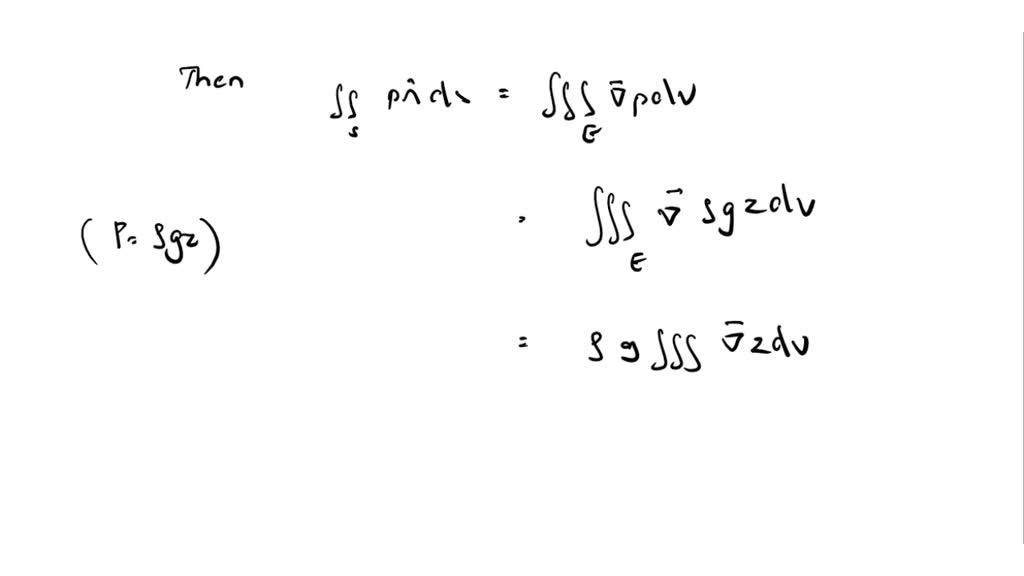 Then ∬_S p n̂ ds = ∭_E ∇̄ p dv
(P = ρgz) = ∭_E ∇⃗ ρgz dv
= ρ g ∭ ∇̄ z dv